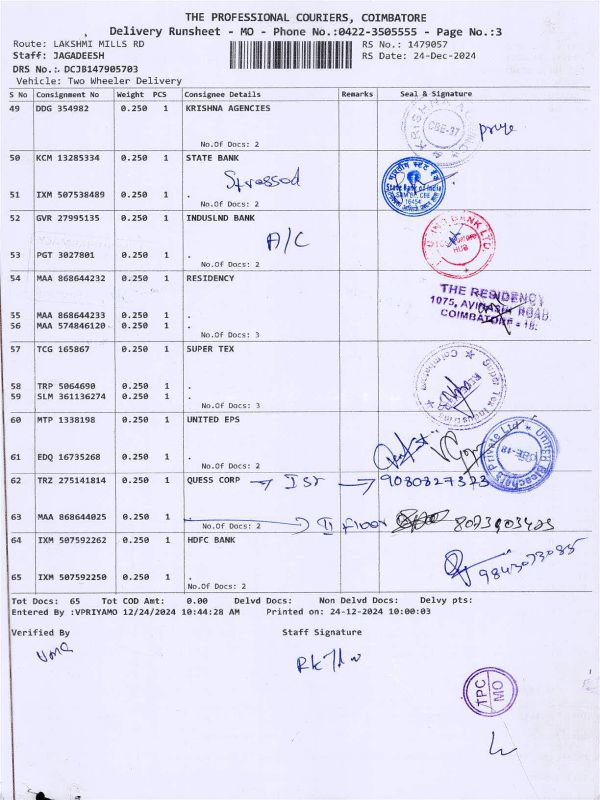 THE PROFESSIONAL COURIERS, COIMBATORE
Delivery Runsheet - MO - Phone No.:0422-3505555 - Page No.:3
Route: LAKSHMI MILLS RD RS No.: 1479057
Staff: JAGADEESH RS Date: 24-Dec-2024
DRS No.: DCJB147905703
Vehicle: Two Wheeler Delivery
S No Consignment No Weight PCS Consignee Details Remarks Seal & Signature
49 DDG 354982 0.250 1 KRISHNA AGENCIES
KRISHNA AGENCIES CBE-37
No.Of Docs: 2
50 KCM 13285334 0.250 1 STATE BANK
Stressed
भारतीय स्टेट बैंक
State Bank of India
SAM BR, CBE
16454
51 IXM 507538489 0.250 1 .
No.Of Docs: 2
52 GVR 27995135 0.250 1 INDUSLND BANK
A/C
BANK LTD.
HUB
53 PGT 3027801 0.250 1 .
No.Of Docs: 2
54 MAA 868644232 0.250 1 RESIDENCY
THE RESIDENCY
1075, AVINASHI ROAD,
COIMBATORE - 18.
55 MAA 868644233 0.250 1 .
56 MAA 574846120 0.250 1 .
No.Of Docs: 3
57 TCG 165867 0.250 1 SUPER TEX
Super Tex Industry Coimbatore
58 TRP 5064690 0.250 1 .
59 SLM 361136274 0.250 1 .
No.Of Docs: 3
60 MTP 1338198 0.250 1 UNITED EPS
United Bleachers Private Ltd CBE-18
61 EDQ 16735268 0.250 1 .
No.Of Docs: 2
62 TRZ 275141814 0.250 1 QUESS CORP → I st → 9080827323
63 MAA 868644025 0.250 1
No.Of Docs: 2 II floor 8073903423
64 IXM 507592262 0.250 1 HDFC BANK
9843073085
65 IXM 507592250 0.250 1 .
No.Of Docs: 2
Tot Docs: 65 Tot COD Amt: 0.00 Delvd Docs: Non Delvd Docs: Delvy pts:
Entered By :VPRIYAMO 12/24/2024 10:44:28 AM Printed on: 24-12-2024 10:00:03
Verified By Staff Signature
Uma
TPC
MO